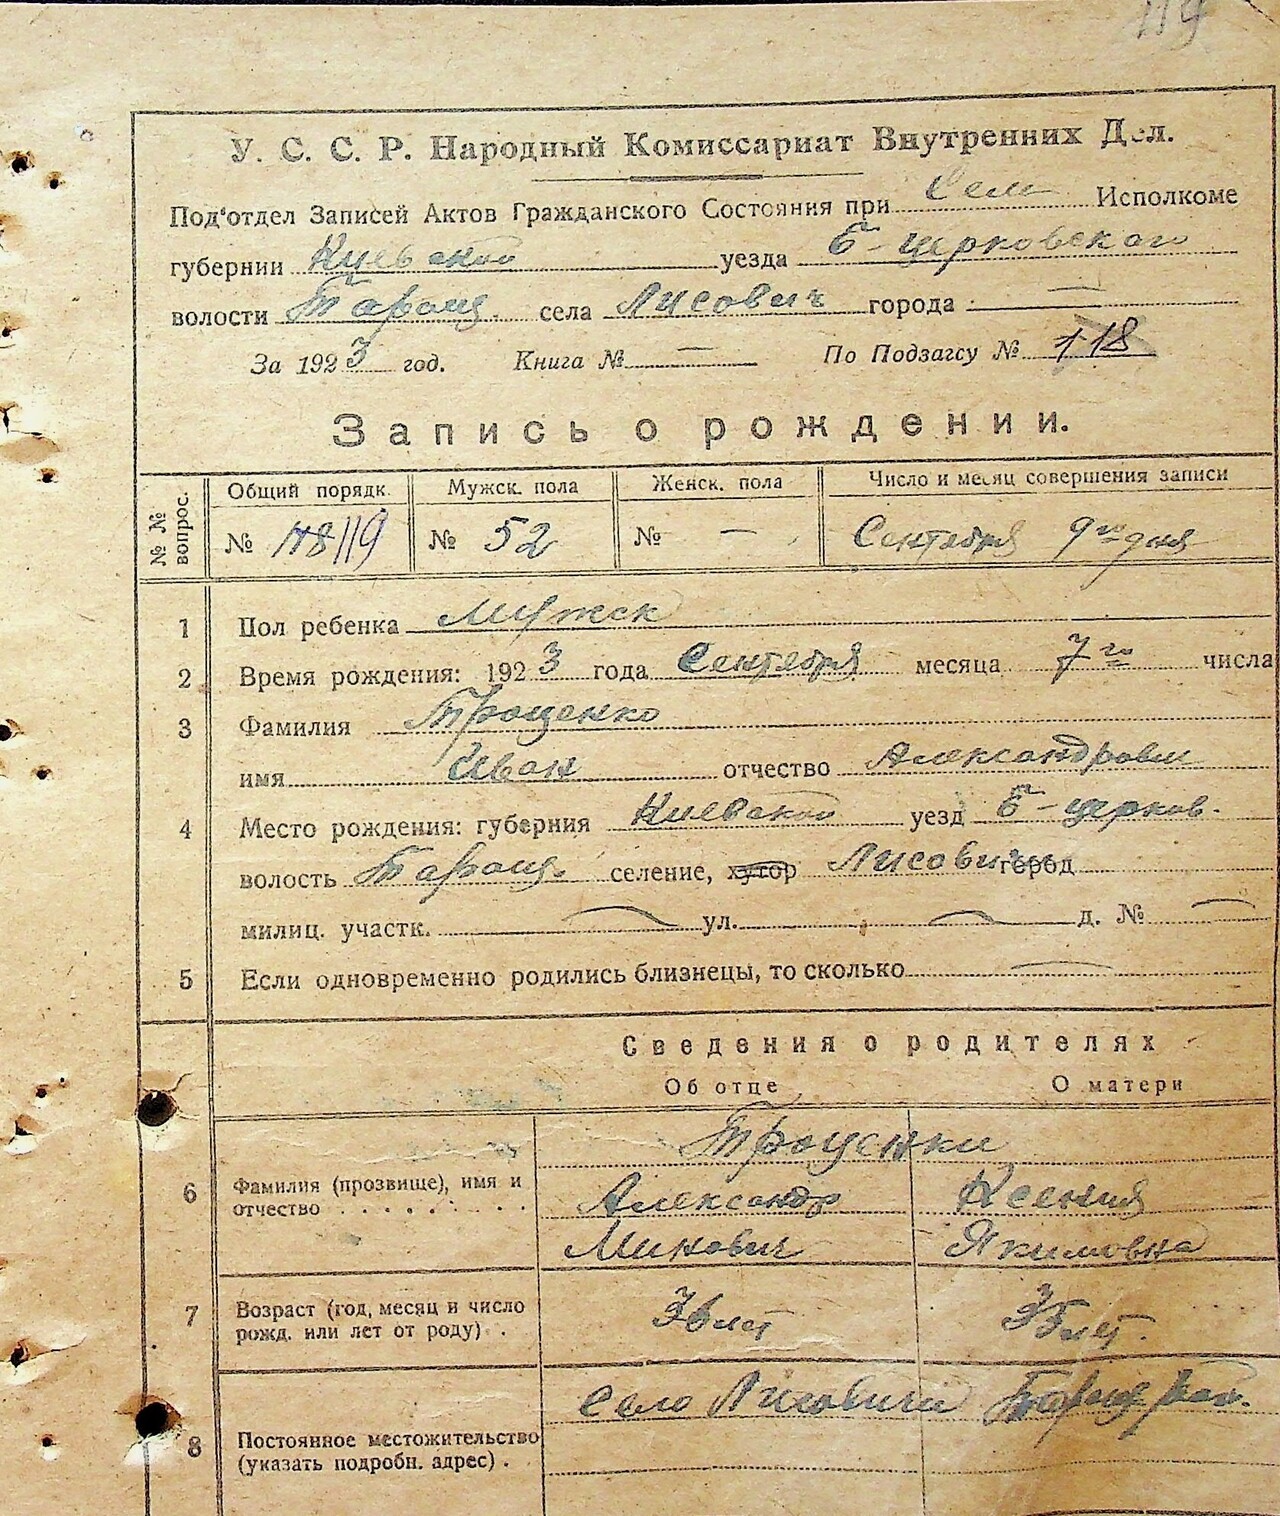 119
У. С. С. Р. Народный Комиссариат Внутренних Дел.
Под'отдел Записей Актов Гражданского Состояния при Сель Исполкоме
губернии Киевской уезда Б-церковского
волости Таращ. села Лисович города —
За 1923 год. Книга № — По Подзагсу № 118
Запись о рождении.
№ № вопрос. Общий порядк. Мужск. пола Женск. пола Число и месяц совершения записи
№ 119 № 52 № — Сентября 9го дня
1 Пол ребенка Мужск
2 Время рождения: 1923 года Сентября месяца 7го числа
3 Фамилия Троценко
имя Иван отчество Александрович
4 Место рождения: губерния Киевской уезд Б-церков.
волость Таращ. селение, хутор Лисович город
милиц. участк. — ул. — д. № —
5 Если одновременно родились близнецы, то сколько —
Сведения о родителях
Об отце О матери
Троценки
6 Фамилия (прозвище), имя и Александр Ксения
отчество . . . . . . . . Минович Якимовна
7 Возраст (год, месяц и число 36 лет 35 лет.
рожд. или лет от роду) .
Село Лисовичи Таращ. рай.
8 Постоянное местожительство
(указать подробн. адрес) .